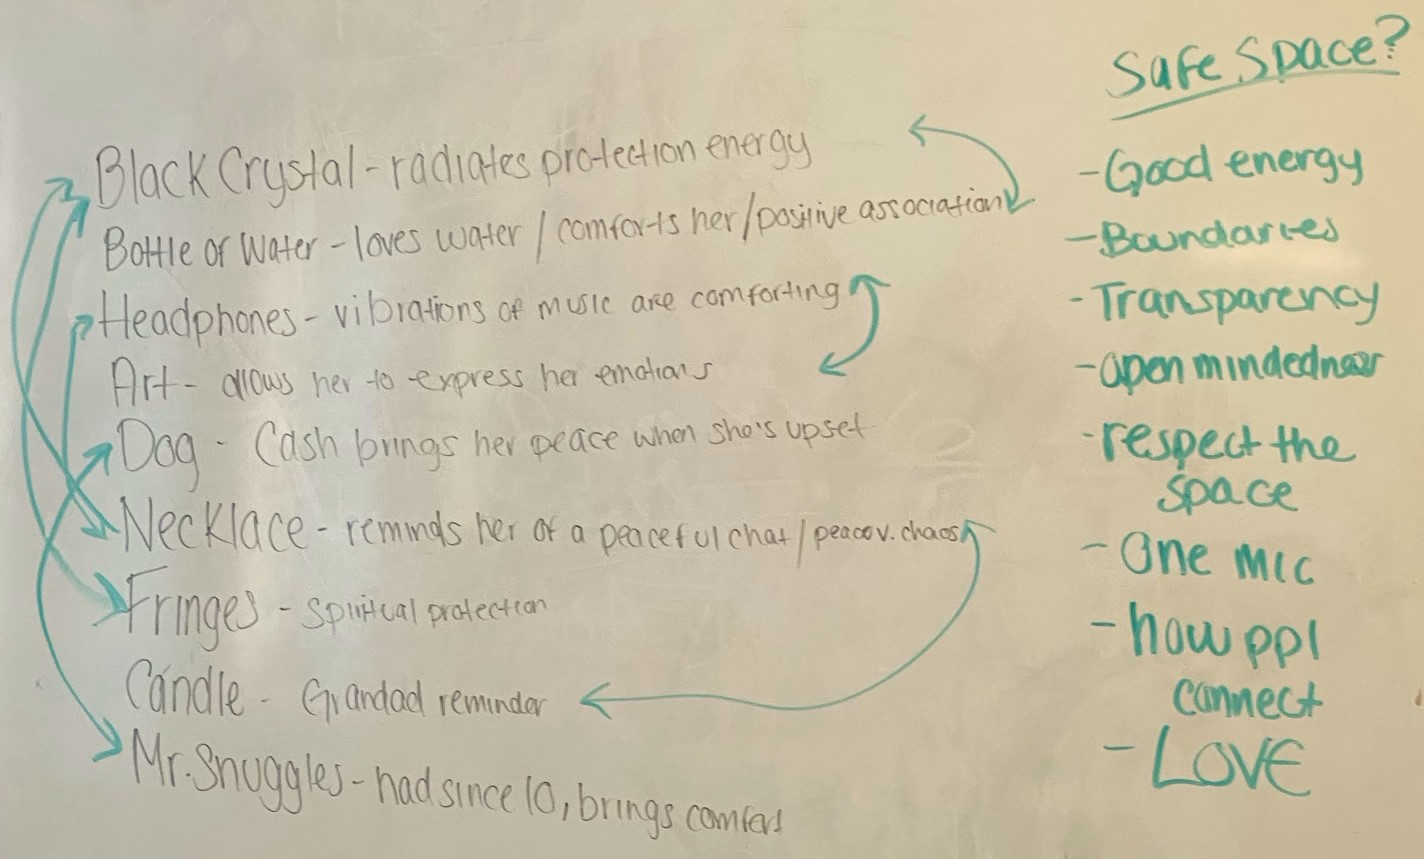 Black Crystal - radiates protection energy
Bottle of Water - loves water / comforts her / positive association
Headphones - vibrations of music are comforting
Art - allows her to express her emotions
Dog - Cash brings her peace when she's upset
Necklace - reminds her of a peaceful chat / peace v. chaos
Fringes - spiritual protection
Candle - Grandad reminder
Mr. Snuggles - had since 10, brings comfort
Safe Space?
- Good energy
- Boundaries
- Transparency
- open mindedness
- respect the
space
- One mic
- how ppl
connect
- LOVE